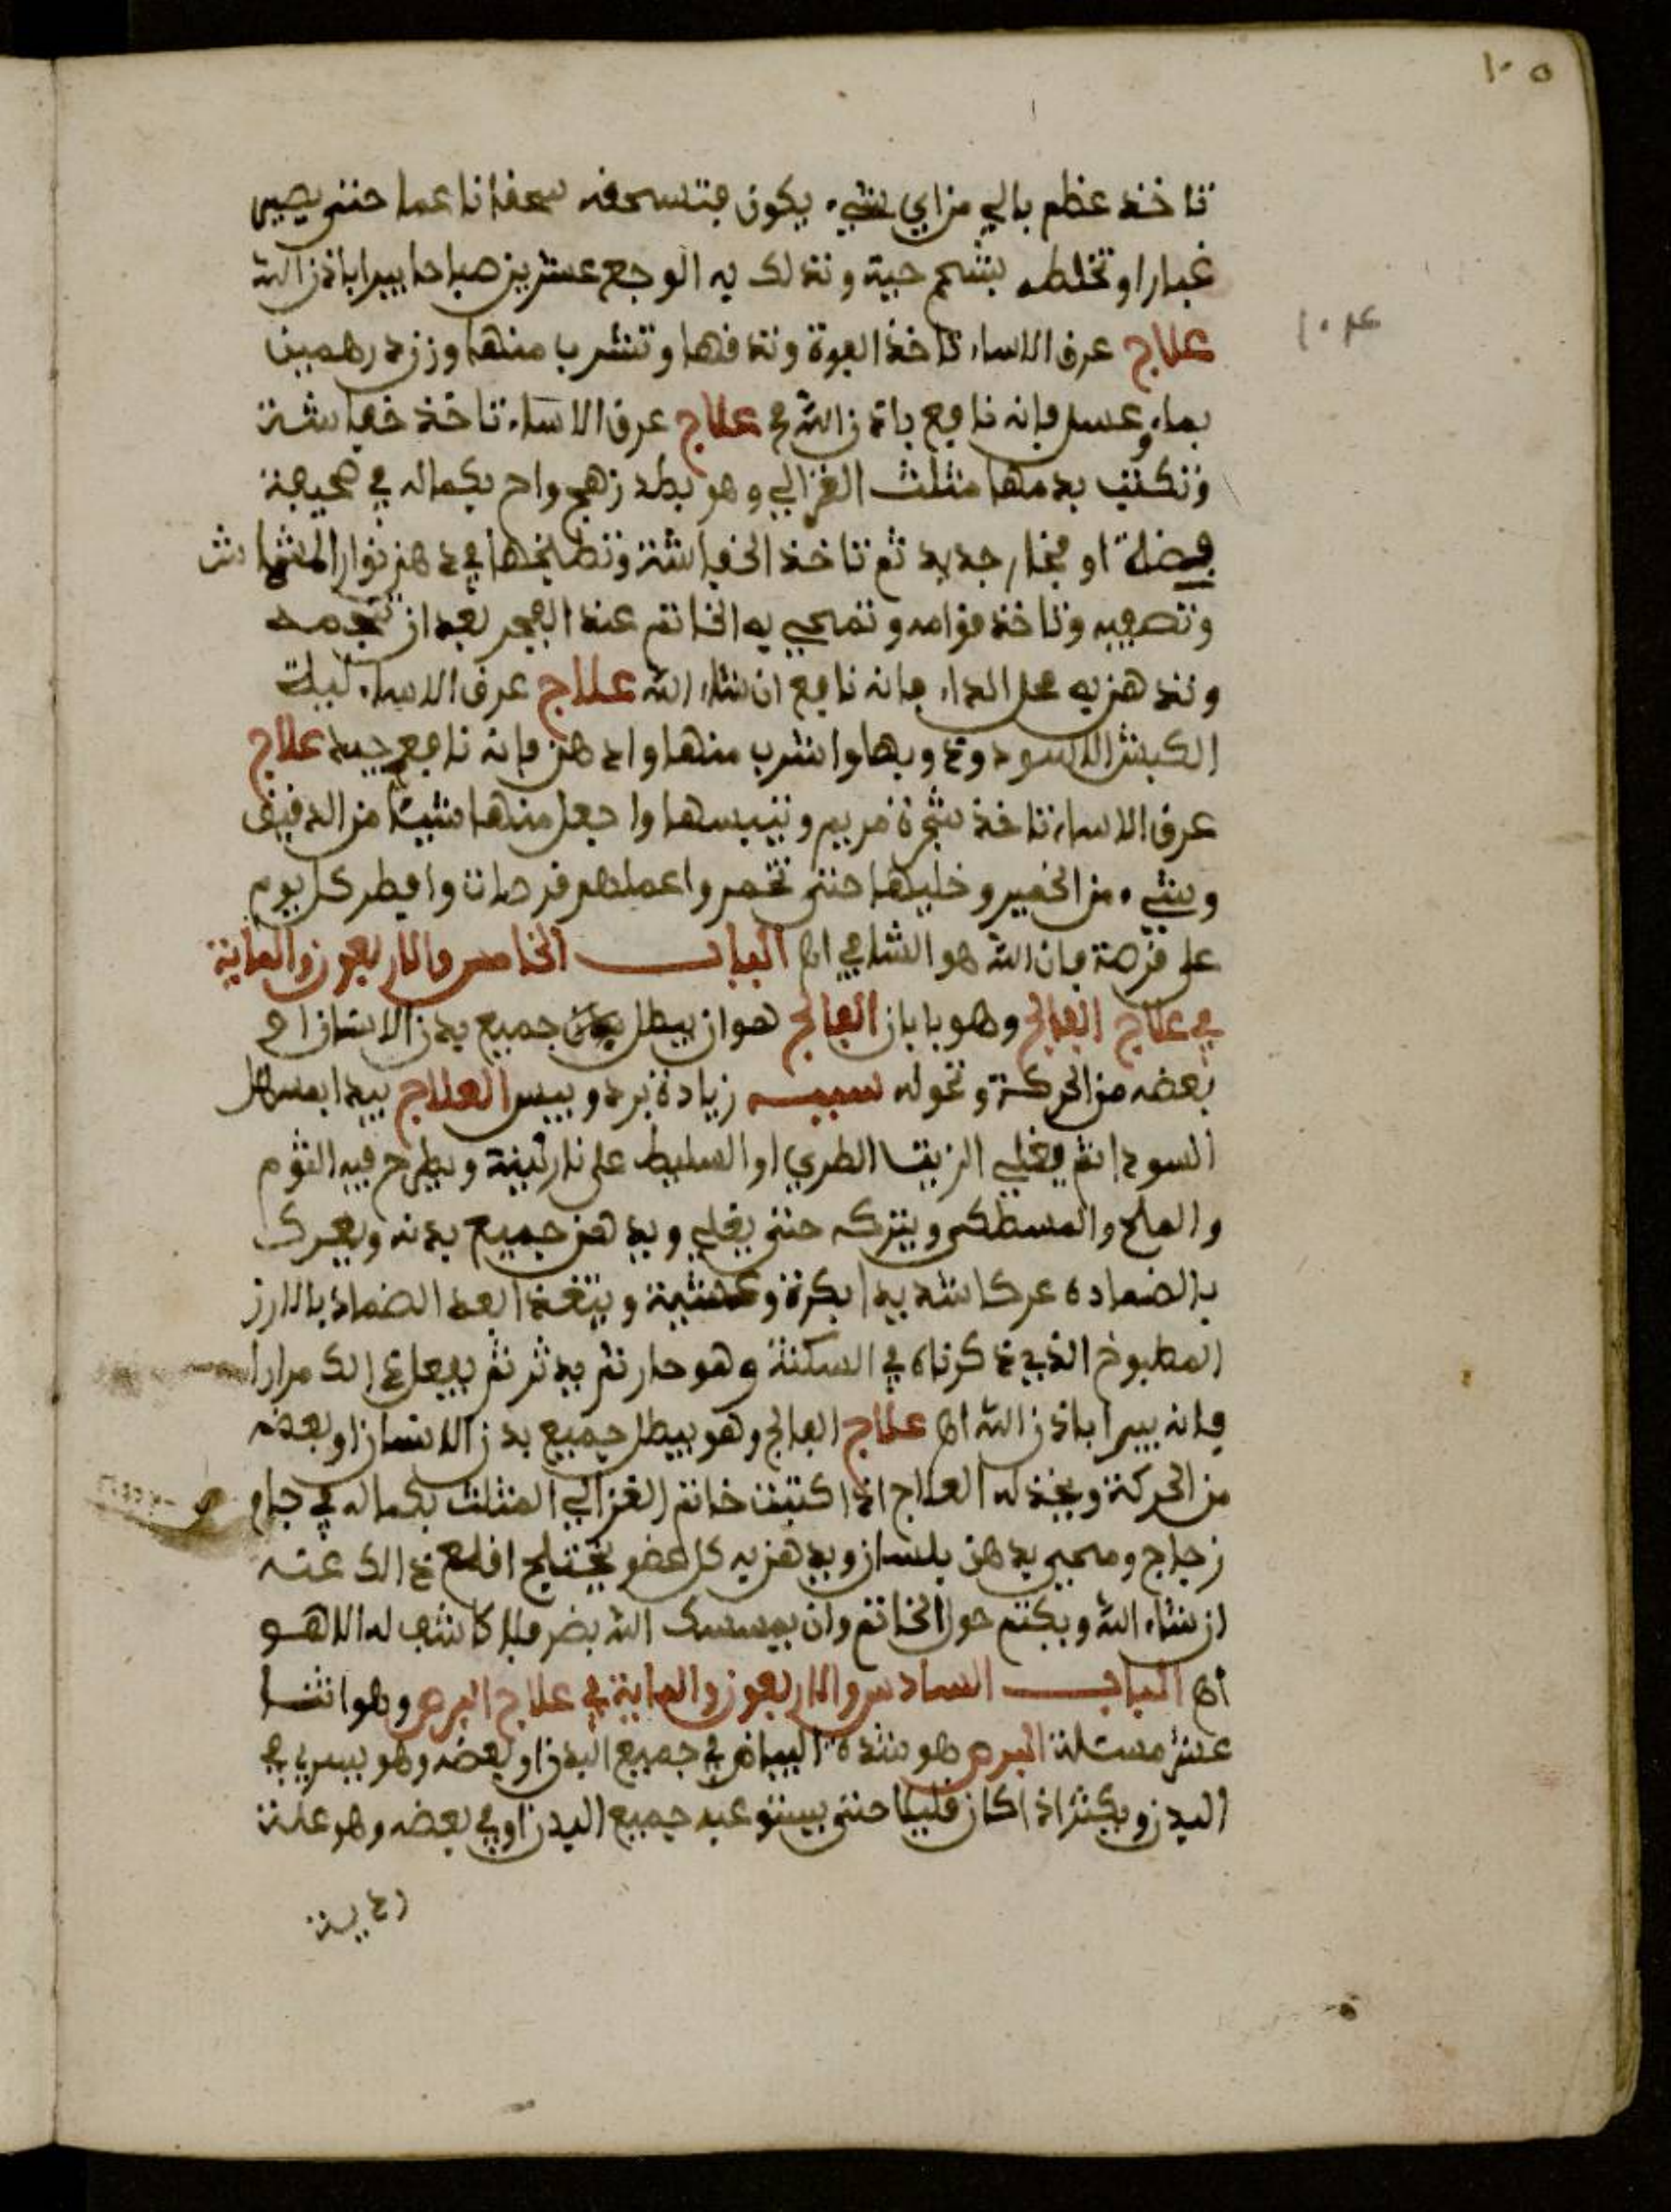 ١٠٥
تاخذ عظم بالي من اي شيء يكون فتسحقه سحقا ناعما حتى يصير
غبارا وتخلطه بشحم حية وتدلك به الوجع عشرين صباحا يبرا باذن الله
١٠٤
علاج عرق الاسا، تاخذ الفوة وتدقها وتشرب منها وزن درهمين
بماء وعسل فانه نافع باذن الله علاج عرق الاسا، تاخذ خفاشة
وتكتب بدمها مثلث الغزالي وهو بطد زهج واح بكماله في صحيفة
فضة او فخار جديد ثم تاخذ الخفاشة وتطبخها في دهن نوار المشماش
وتصفيه وتاخذ قوامه وتمحي به الخاتم عند الفجر بعد ان تنجمه
وتدهن به محل الداء فانه نافع ان شاء الله علاج عرق الاسا، ليلة
الكبش الاسود وذوبها واشرب منها وادهن فانه نافع جيد علاج
عرق الاسا، تاخذ شجرة مريم وتيبسها واجعل منها شيئا من الدقيق
وشيء من الخمير وخليها حتى تخمر واعملهم قرصات وافطر كل يوم
على قرصة فان الله هو الشافي اه الباب الخامس والاربعون والماية
في علاج الفالج وهو بابان الفالج هو ان يبطل جميع بدن الانسان او
بعضه من الحركة ونحوله سببه زيادة برد ويبس العلاج يبدا بمسهل
السودا ثم يغلي الزيت الطري او السليط على نار لينة ويطرح فيه الثوم
والملح والمسطكى ويتركه حتى يغلي ويدهن جميع بدنه ويعرك
بالضمادة عركا شديدا بكرة وعشية ويتغدا بعد الضماد بالارز
المطبوخ الذي ذكرناه في السكتة وهو حار ثم يدثر ثم يفعل ذالك مرارا
فانه يبرا باذن الله اه علاج الفالج وهو يبطل جميع بدن الانسان او بعضه
من الحركة ويخذله العلاج اذا كتبت خاتم الغزالي المثلث بكماله في جام
زجاج ومحي بدهن بلسان ويدهن به كل عضو يختلج اقلع ذالك عنه
ان شاء الله ويكتب حول الخاتم وان يمسسك الله بضر فلا كاشف له الا هو
اه الباب السادس والاربعون والماية في علاج البرص وهو اثنا
عشر مسئلة البرص هو شدة البياض في جميع البدن او بعضه وهو يسري في
البدن ويكثر اذا كان قليلا حتى يستوعب جميع البدن او في بعضه وهو علة